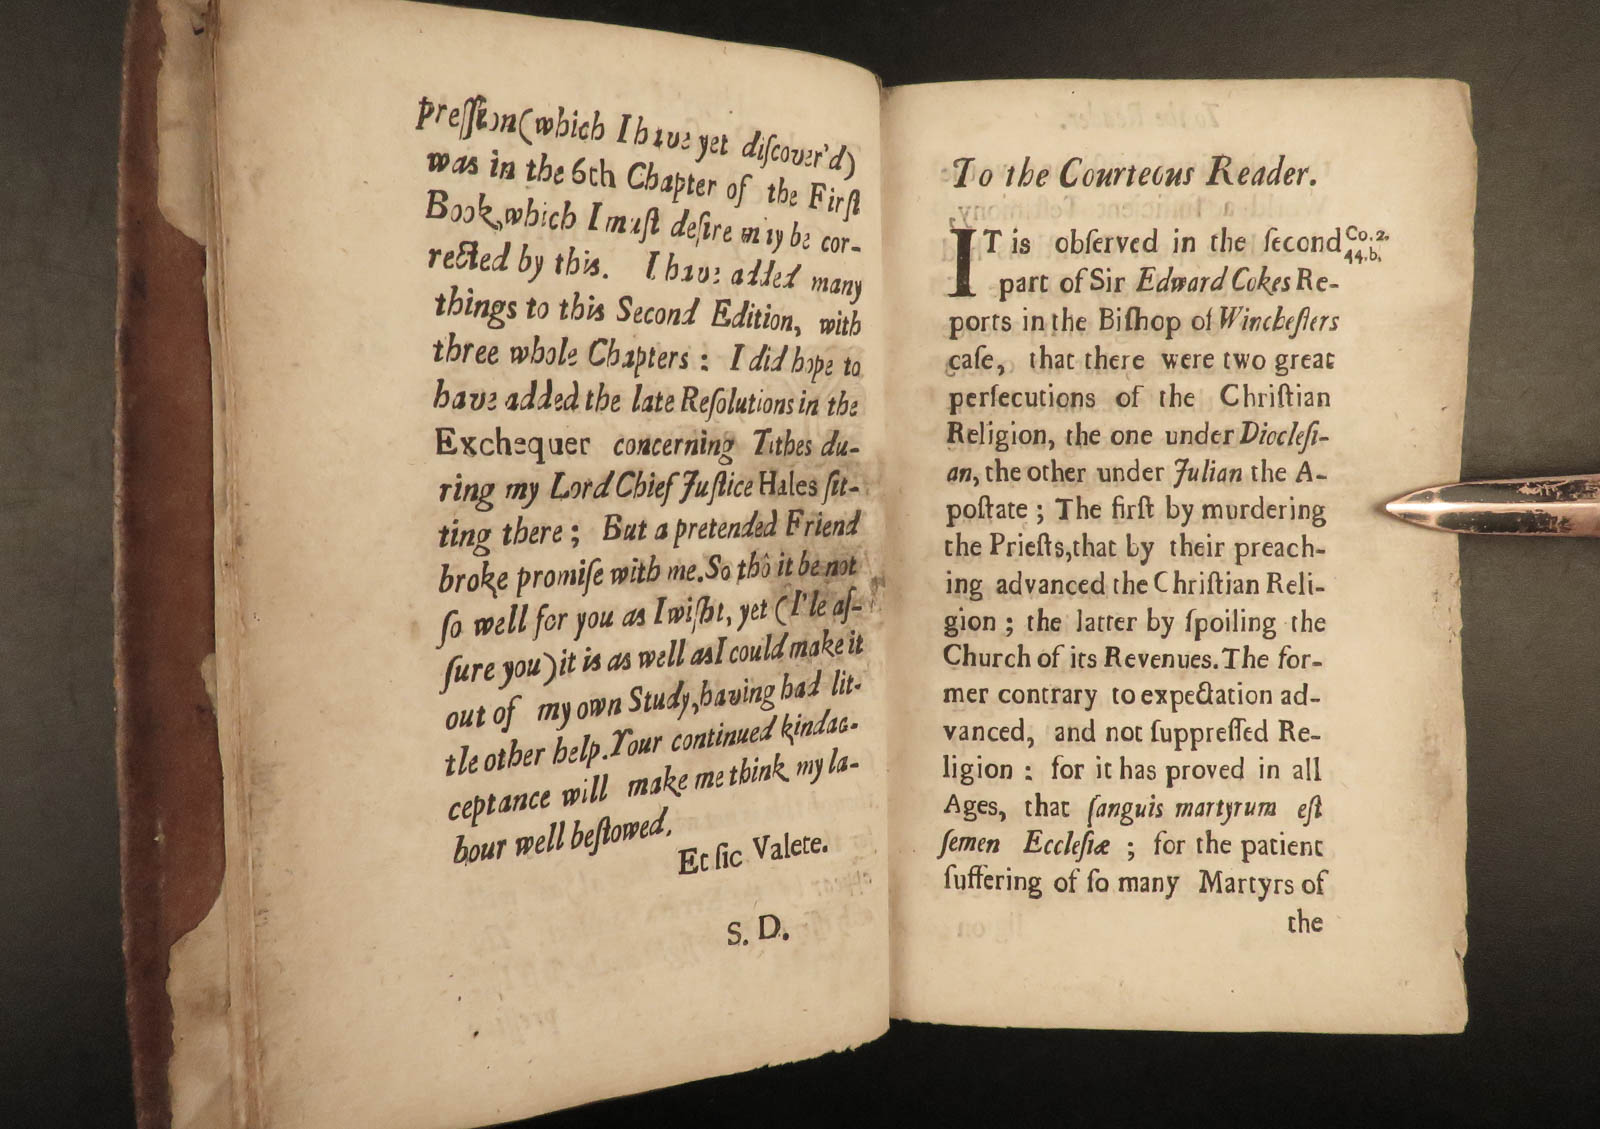 preſſion (which I have yet diſcover'd)
was in the 6th Chapter of the Firſt
Book, which I muſt deſire may be cor-
rected by this. I have added many
things to this Second Edition, with
three whole Chapters : I did hope to
have added the late Reſolutions in the
Exchequer concerning Tithes du-
ring my Lord Chief Juſtice Hales ſit-
ting there ; But a pretended Friend
broke promiſe with me. So thô it be not
ſo well for you as I wiſht, yet (I'le aſ-
ſure you) it is as well as I could make it
out of my own Study, having had lit-
tle other help. Your continued kind ac-
ceptance will make me think my la-
bour well beſtowed.
Et ſic Valete.
S. D.
To the Courteous Reader.
IT is obſerved in the ſecond Co. 2.
part of Sir Edward Cokes Re- 44. b.
ports in the Biſhop of Wincheſters
caſe, that there were two great
perſecutions of the Chriſtian
Religion, the one under Diocleſi-
an, the other under Julian the A-
poſtate ; The firſt by murdering
the Prieſts, that by their preach-
ing advanced the Chriſtian Reli-
gion ; the latter by ſpoiling the
Church of its Revenues. The for-
mer contrary to expectation ad-
vanced, and not ſuppreſſed Re-
ligion : for it has proved in all
Ages, that ſanguis martyrum eſt
ſemen Eccleſiæ ; for the patient
ſuffering of ſo many Martyrs of
the